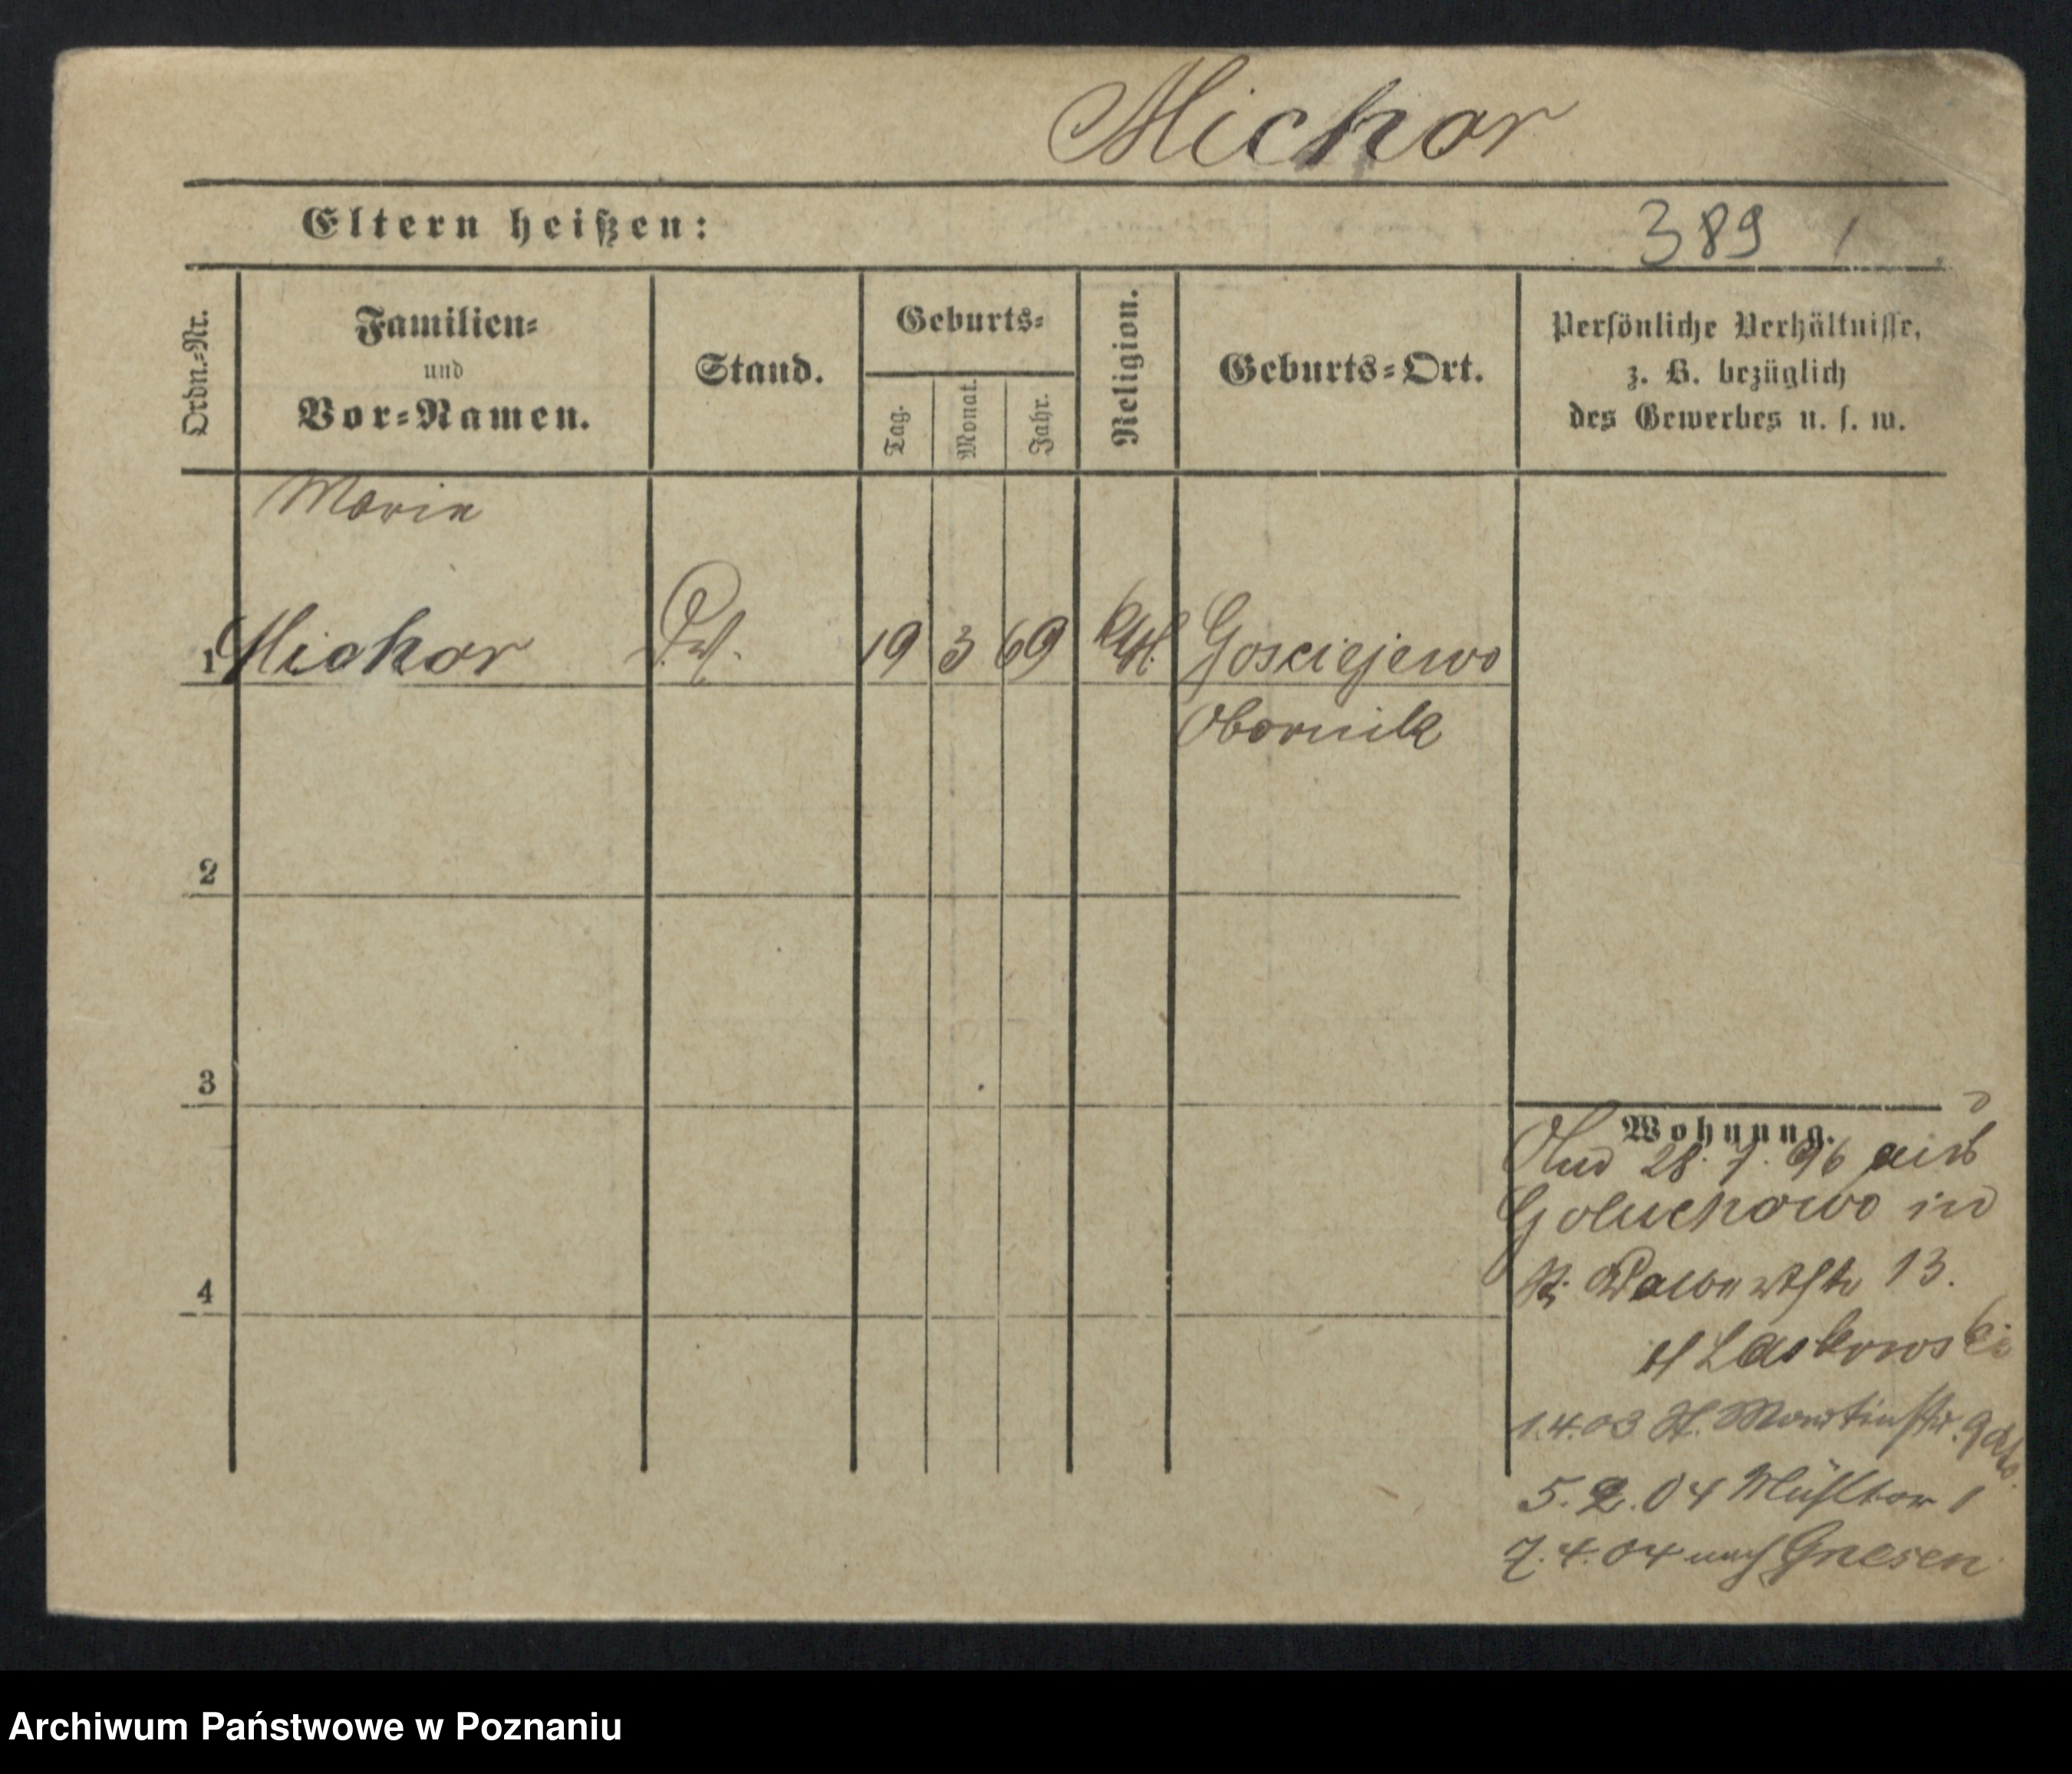 Michor
Eltern heißen:
389 /
Ordn.-Nr.
Familien-
und
Vor-Namen.
Stand.
Geburts-
Tag.
Monat.
Jahr.
Religion.
Geburts-Ort.
Persönliche Verhältnisse,
z. B. bezüglich
des Gewerbes u. s. w.
Maria
1 Michor 19 3 69 kath. Gosciejewo
Obornik
2
3
4
Wohnung.
28. 7. 96 aus
Goluchowo in
13.
Laskowski
1.4.03 St. Martinstr.
5.2.04 Mühltor 1
7.4.04 nach Gnesen
Archiwum Państwowe w Poznaniu